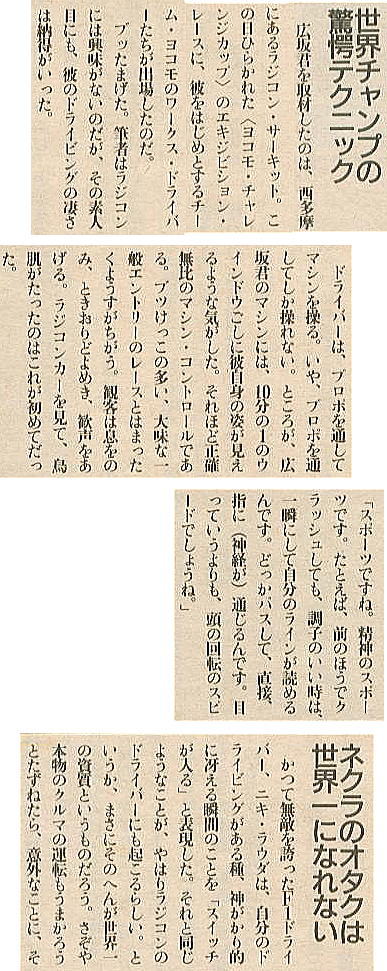 世界チャンプの
驚愕テクニック
広坂君を取材したのは、西多摩
にあるラジコン・サーキット。こ
の日ひらかれた〈ヨコモ・チャレ
ンジカップ〉のエキジビション・
レースに、彼をはじめとするチー
ム・ヨコモのワークス・ドライバ
ーたちが出場したのだ。
ブッたまげた。筆者はラジコン
には興味がないのだが、その素人
目にも、彼のドライビングの凄さ
は納得がいった。
ドライバーは、プロポを通して
マシンを操る。いや、プロポを通
してしか操れない。ところが、広
坂君のマシンには、10分の1のウ
インドウごしに彼自身の姿が見え
るような気がした。それほど正確
無比のマシン・コントロールであ
る。ブツけっこの多い、大味な一
般エントリーのレースとはまった
くようすがちがう。観客は息をの
み、ときおりどよめき、歓声をあ
げる。ラジコンカーを見て、鳥
肌がたったのはこれが初めてだっ
た。
「スポーツですね。精神のスポー
ツです。たとえば、前のほうでク
ラッシュしても、調子のいい時は、
一瞬にして自分のラインが読める
んです。どっかパスして、直接、
指に（神経が）通じるんです。目
っていうよりも、頭の回転のスピ
ードでしょうね。」
ネクラのオタクは
世界一になれない
かつて無敵を誇ったF1ドライ
バー、ニキ・ラウダは、自分のド
ライビングがある種、神がかり的
に冴える瞬間のことを「スイッチ
が入る」と表現した。それと同じ
ようなことが、やはりラジコンの
ドライバーにも起こるらしい。と
いうか、まさにそのへんが世界一
の資質というものだろう。さぞや
本物のクルマの運転もうまかろう
とたずねたら、意外なことに、そ